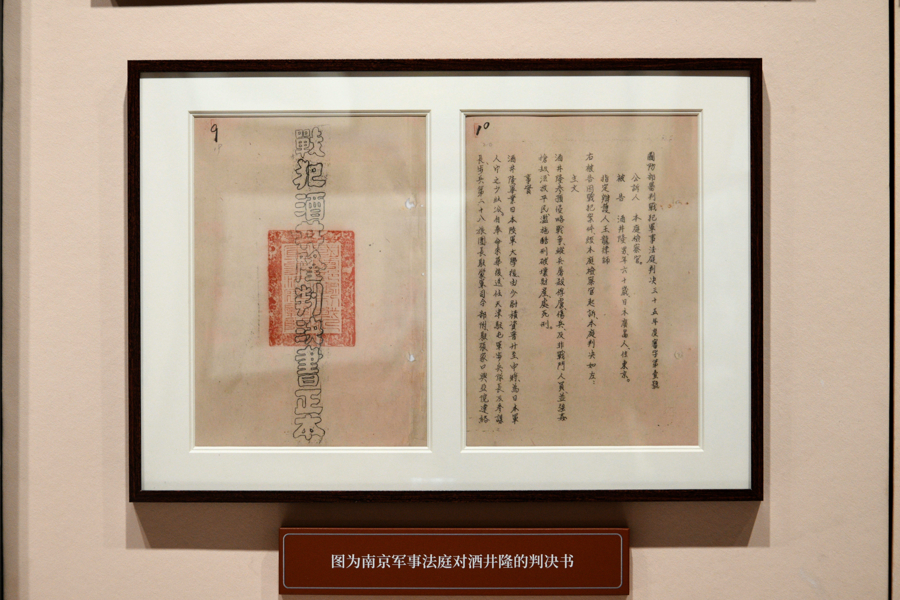 9
戰犯酒井隆判決書正本
10
國防部審判戰犯軍事法庭判决三十五年度審字第壹號
公訴人 本庭檢察官。
被告 酒井隆 男年六十歲日本廣島人,住東京。
指定辯護人王龍律師
右被告因戰犯案件經本庭檢察官起訴本庭判决如左:
主文
酒井隆參預侵略戰爭縱兵屠殺俘虜傷兵及非戰鬥人員並強姦
搶刼流放平民濫施酷刑破壞財產處死刑。
事實
酒井隆畢業日本陸軍大學後由少尉積資晉升至中將為日本軍
人中之少壯派
長步兵第二十八旅團長駐蒙軍司令部附駐張家口興亞院連絡
图为南京军事法庭对酒井隆的判决书